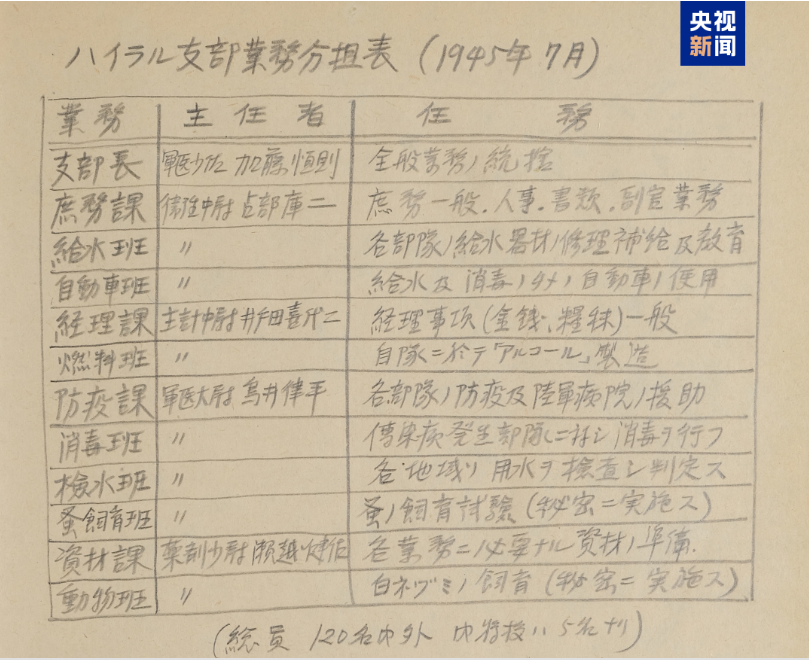 央视
新闻
ハイラル支部業務分担表 (1945年7月)
業務 主任者 任務
支部長 軍医少佐 加藤恒則 全般業務ノ統括
庶務課 衛生中尉 占部庫二 庶務一般.人事.書類.副官業務
給水班 〃 各部隊ノ給水器材ノ修理補給及教育
自動車班 〃 給水及消毒ノタメノ自動車ノ使用
経理課 主計中尉 井田喜代二 経理事項(金銭、糧秣)一般
燃料班 〃 自隊ニ於テ「アルコール」製造
防疫課 軍医大尉 鳥井律平 各部隊ノ防疫及陸軍病院ノ援助
消毒班 〃 傳染病発生部隊ニ対シ消毒ヲ行フ
檢水班 〃 各地域ノ用水ヲ檢査シ判定ス
蚤飼育班 〃 蚤ノ飼育試験(秘密ニ実施ス)
資材課 薬剤少尉 瀬越健佐 各業務ニ必要ナル資材ノ準備.
動物班 〃 白ネヅミノ飼育(秘密ニ実施ス)
(総員 120名内外 内将校ハ5名ナリ)